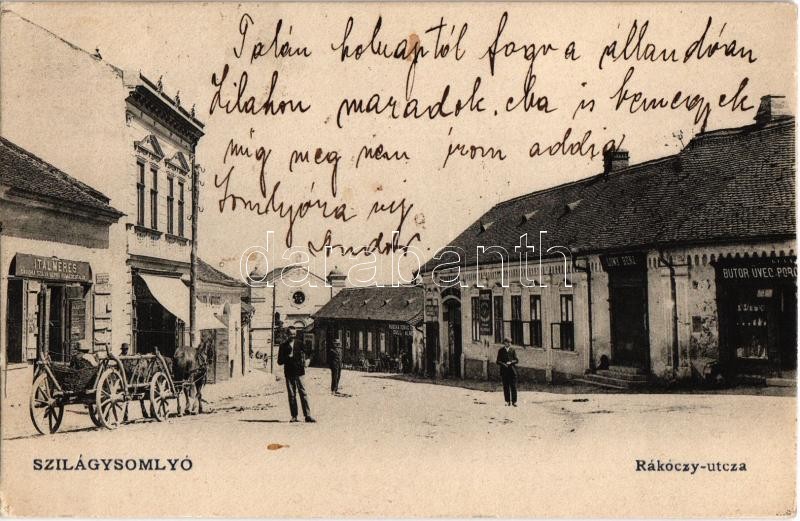 Talán holnaptól fogva állandóan
Zilahon maradok, oda is bemegyek
míg meg nem írom addig
Somlyóra írj
Andor.
ITALMÉRÉS
LŐWY BÉNI
BUTOR ÜVEG PORC
darabanth
SZILÁGYSOMLYÓ
Rákóczy-utcza